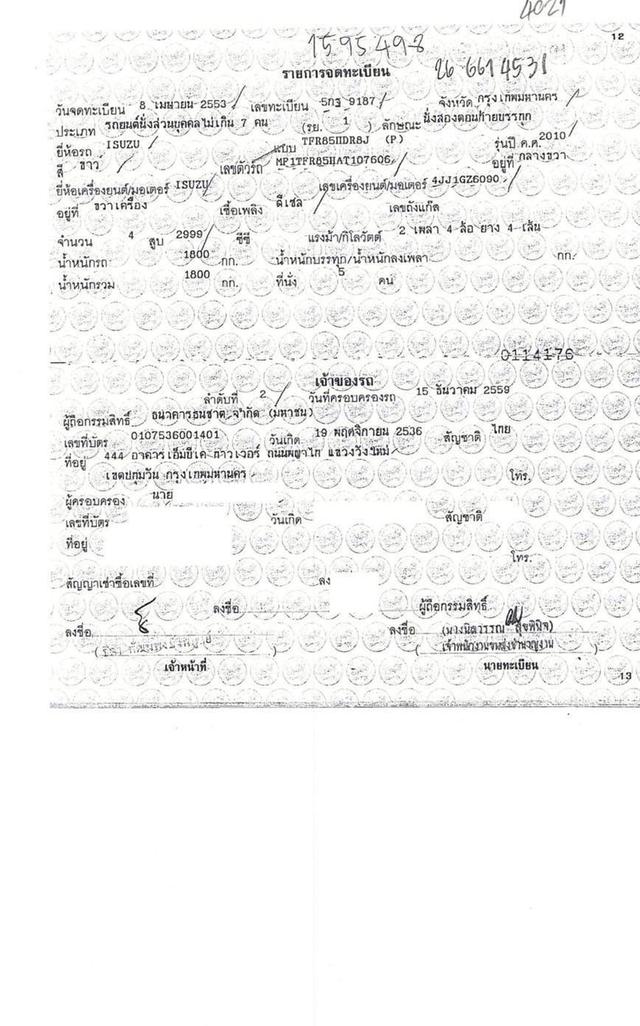 4021
12
1595498
26 6614531
รายการจดทะเบียน
วันจดทะเบียน 8 เมษายน 2553 เลขทะเบียน 5กฐ 9187 จังหวัด กรุงเทพมหานคร
ประเภท รถยนต์นั่งส่วนบุคคลไม่เกิน 7 คน (รย. 1 ) ลักษณะ นั่งสองตอนท้ายบรรทุก
ยี่ห้อรถ ISUZU แบบ TFR85HDR8J (P) รุ่นปี ค.ศ. 2010
สี ขาว เลขตัวรถ MP1TFR85HAT107606 อยู่ที่ กลางขวา
ยี่ห้อเครื่องยนต์/มอเตอร์ ISUZU เลขเครื่องยนต์/มอเตอร์ 4JJ1GZ6090
อยู่ที่ ขวาเครื่อง เชื้อเพลิง ดีเซล เลขถังแก๊ส
จำนวน 4 สูบ 2999 ซีซี แรงม้า/กิโลวัตต์ 2 เพลา 4 ล้อ ยาง 4 เส้น
น้ำหนักรถ 1800 กก. น้ำหนักบรรทุก/น้ำหนักลงเพลา กก.
น้ำหนักรวม 1800 กก. ที่นั่ง 5 คน
0114176
เจ้าของรถ
ลำดับที่ 2 วันที่ครอบครองรถ 15 ธันวาคม 2559
ผู้ถือกรรมสิทธิ์ ธนาคารธนชาต จำกัด (มหาชน)
เลขที่บัตร 0107536001401 วันเกิด 19 พฤศจิกายน 2536 สัญชาติ ไทย
ที่อยู่ 444 อาคารเอ็มบีเค ทาวเวอร์ ถนนพญาไท แขวงวังใหม่
เขตปทุมวัน กรุงเทพมหานคร โทร.
ผู้ครอบครอง นาย
เลขที่บัตร วันเกิด สัญชาติ
ที่อยู่
โทร.
สัญญาเช่าซื้อเลขที่ ลง
ลงชื่อ ผู้ถือกรรมสิทธิ์
ลงชื่อ ลงชื่อ (นางนิลวรรณ สุขพินิจ)
เจ้าพนักงานขนส่งชำนาญงาน
เจ้าหน้าที่ นายทะเบียน
13